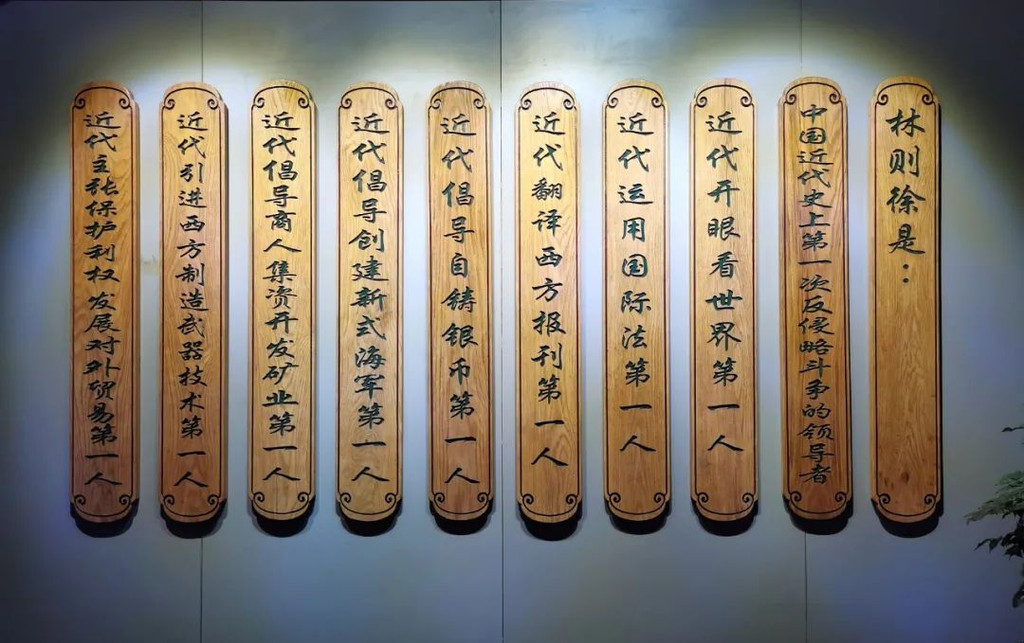 林则徐是：
中国近代史上第一次反侵略斗争的领导者
近代开眼看世界第一人
近代运用国际法第一人
近代翻译西方报刊第一人
近代倡导自铸银币第一人
近代倡导创建新式海军第一人
近代倡导商人集资开发矿业第一人
近代引进西方制造武器技术第一人
近代主张保护利权发展对外贸易第一人